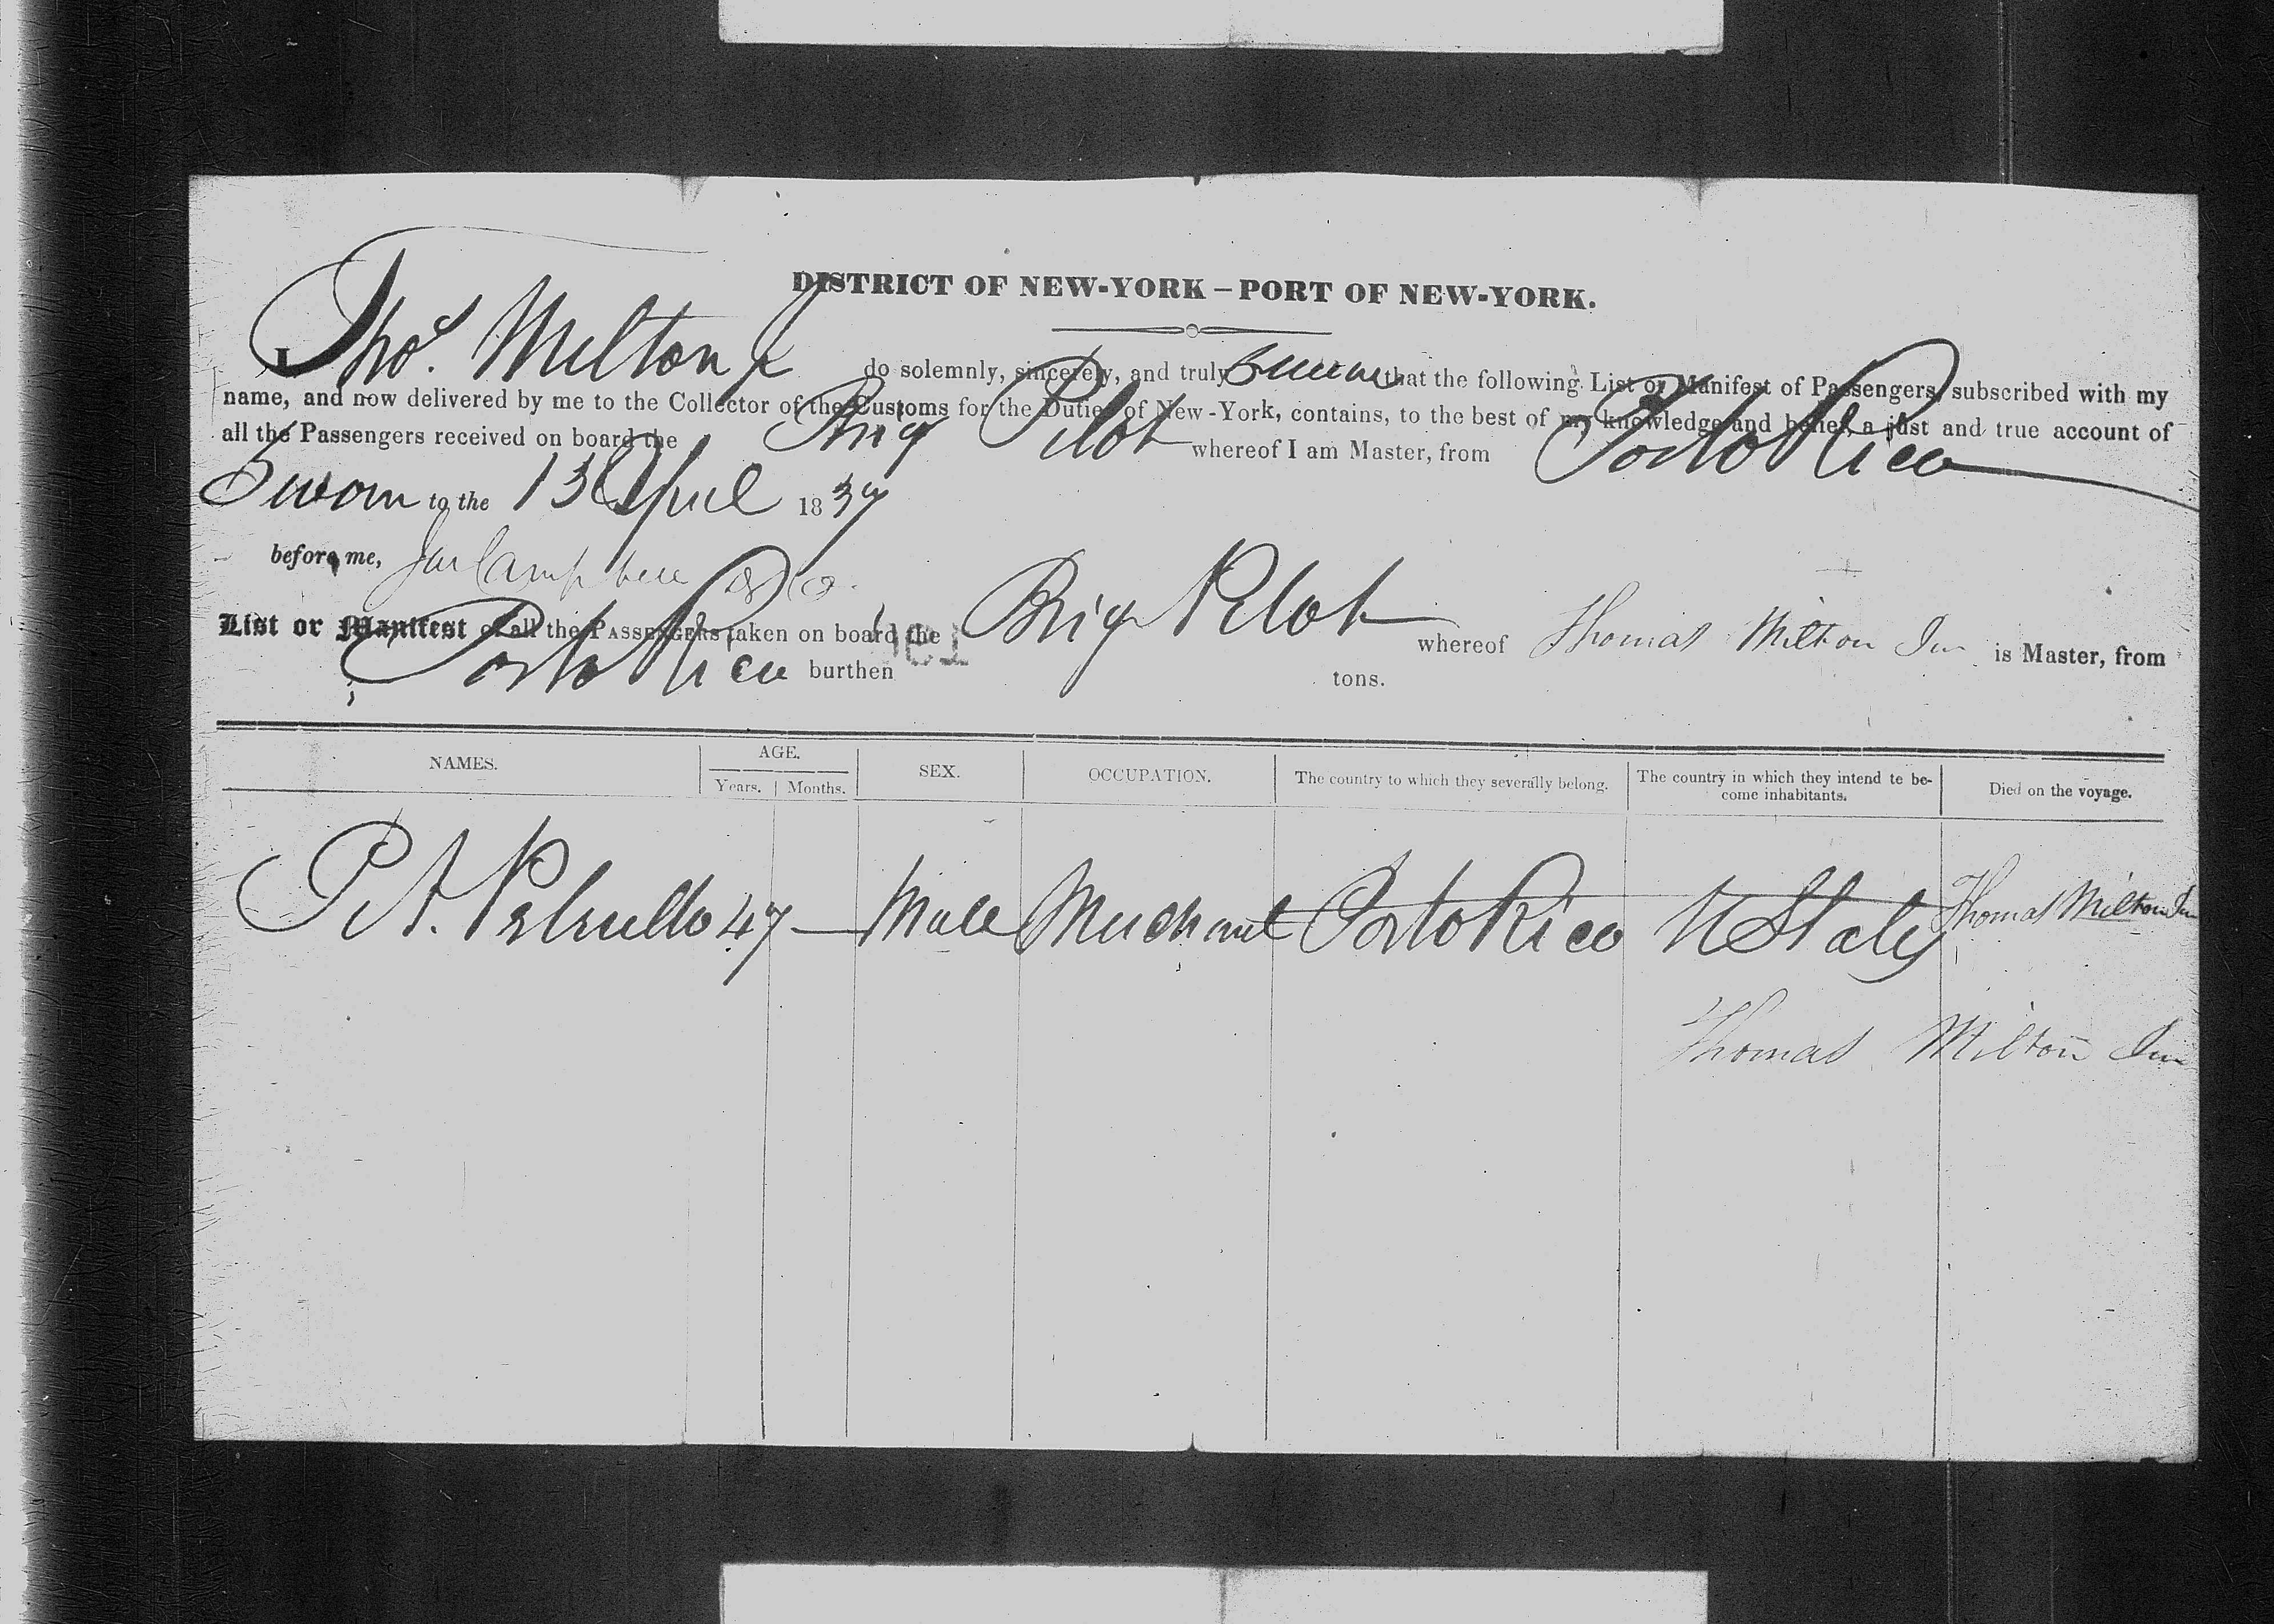 DISTRICT OF NEW-YORK – PORT OF NEW-YORK.
I, Thos. Milton Jr do solemnly, sincerely, and truly swear that the following List or Manifest of Passengers, subscribed with my
name, and now delivered by me to the Collector of the Customs for the Duties of New-York, contains, to the best of my knowledge and belief, a just and true account of
all the Passengers received on board the Brig Pilot whereof I am Master, from Porto Rico
Sworn to the 13 April 1837
before me, Campbell
List or Manifest of all the PASSENGERS taken on board the Brig Pilot whereof Thomas Milton Jun is Master, from
Porto Rico burthen tons.
NAMES. AGE. SEX. OCCUPATION. The country to which they severally belong. The country in which they intend te become inhabitants. Died on the voyage.
Years. Months.
P A. 47 — Male Merchant Porto Rico U States Thomas Milton Jun
Thomas Milton Jun